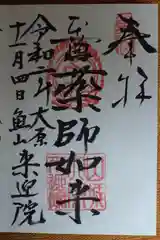 奉拝
薬師如来
令和二年
十一月四日
大原
魚山
来迎院